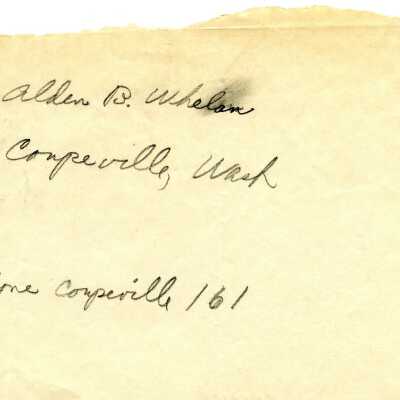 Alden B. Whelan
Coupeville, Wash
one Coupeville 161